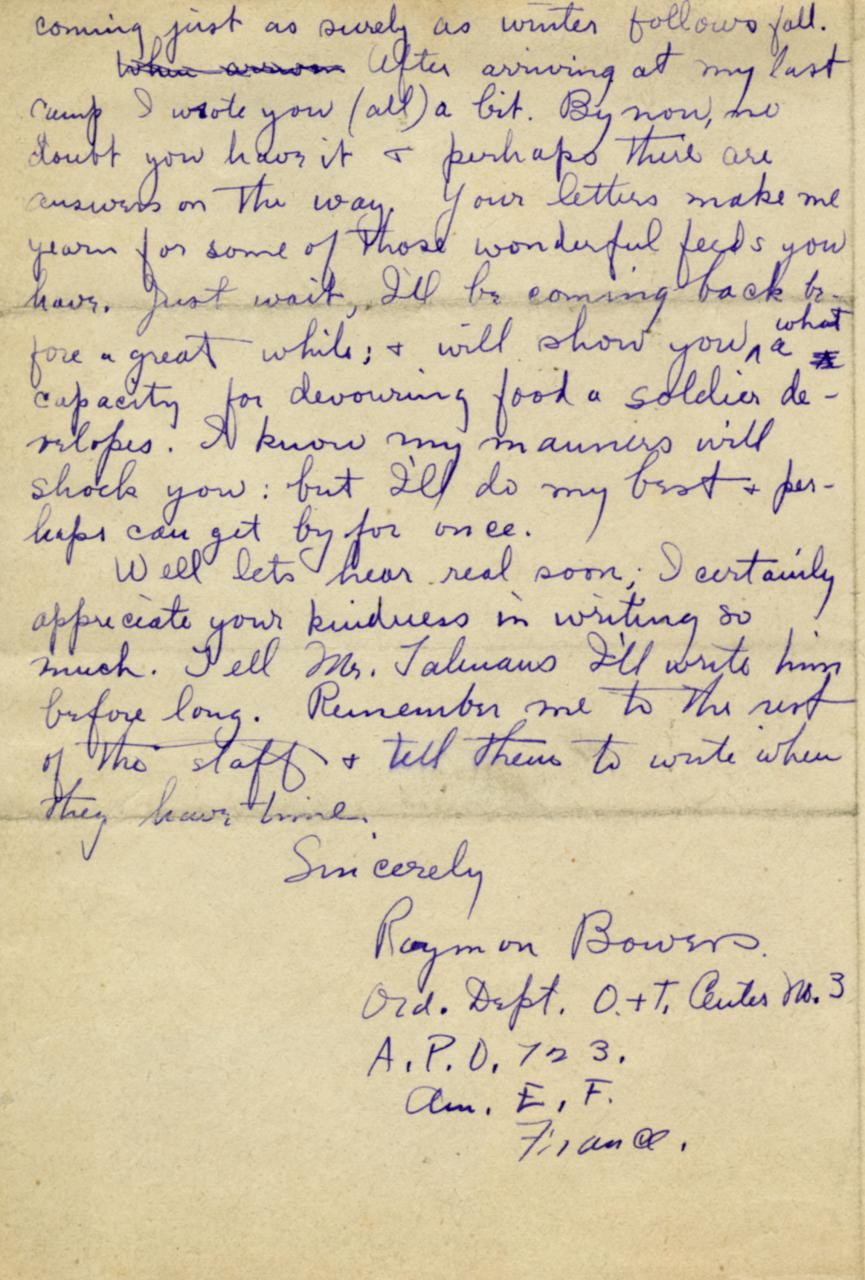 coming just as surely as winter follows fall.
When arriven After arriving at my last
camp I wrote you (all) a bit. By now, no
doubt you have it & perhaps there are
answers on the way. Your letters make me
yearn for some of those wonderful feeds you
have. Just wait, I'll be coming back be-
fore a great while; & will show you what a
capacity for devouring food a soldier de-
velopes. I know my manners will
shock you: but I'll do my best & per-
haps can get by for once.
Well lets hear real soon; I certainly
appreciate your kindness in writing so
much. Tell Mr. Talmans I'll write him
before long. Remember me to the rest
of the staff & tell them to write when
they have time.
Sincerely
Raymon Bowers.
Ord. Dept. O.+T. Center No. 3
A.P.O. 723.
Am. E. F.
France.